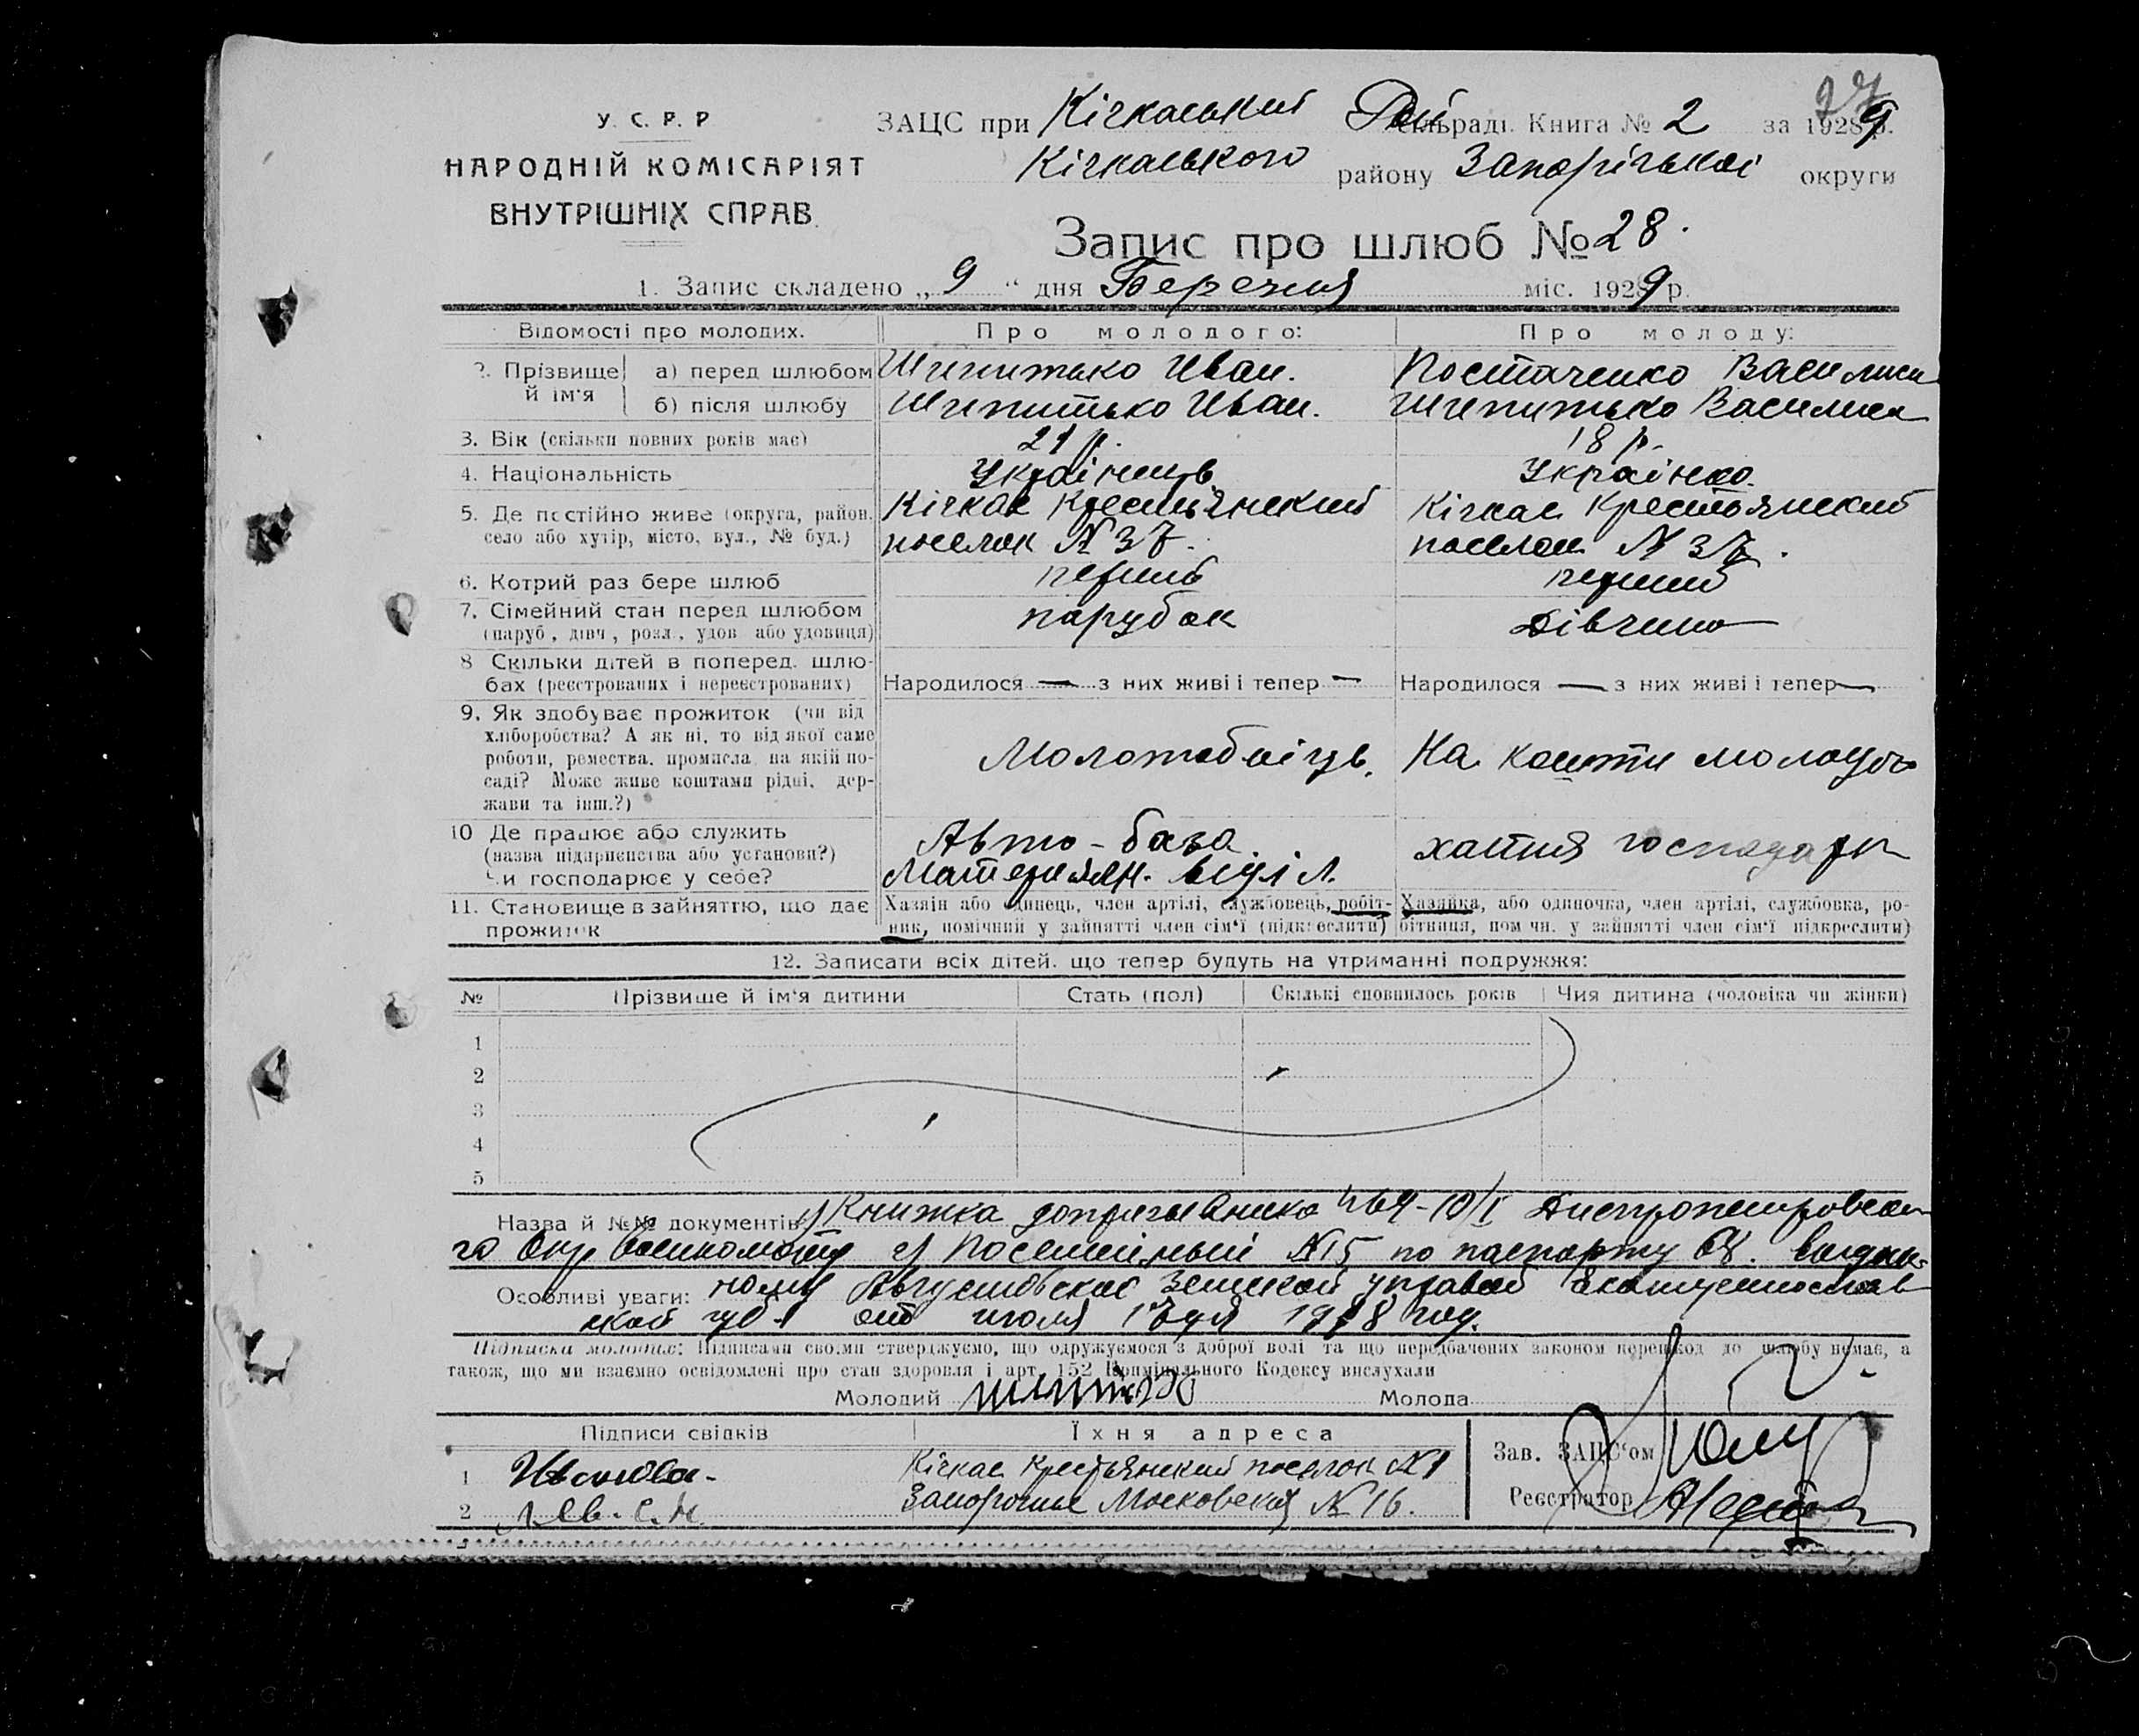 27
У. С. Р. Р
НАРОДНІЙ КОМІСАРІЯТ
ВНУТРІШНІХ СПРАВ.
ЗАЦС при Кічкаський Рай сільраді. Книга № 2 за 1929 р.
Кічкаського району Запорізькоі округи
Запис про шлюб № 28.
1. Запис складено „ 9 “ дня Березня міс. 1929 р.
Відомості про молодих. Про молодого: Про молоду:
2. Прізвище й ім'я а) перед шлюбом Шипитько Иван. Постаченко Василиса
б) після шлюбу Шипитько Иван. Шипитько Василиса
3. Вік (скільки повних років має) 21 р. 18 р.
4. Національність Украінець Украінка.
5. Де постійно живе (округа, район, Кічкас Крестьянский Кічкас Крестьянский
село або хутір, місто, вул., № буд.) поселок № 37. поселок № 37.
6. Котрий раз бере шлюб перший перший
7. Сімейний стан перед шлюбом парубок Дівчина
(паруб, дівч, розл., удов або удовиця)
8 Скільки дітей в поперед. шлю-
бах (реєстрованих і нереєстрованих) Народилося — з них живі і тепер — Народилося — з них живі і тепер —
9. Як здобуває прожиток (чи від
хліборобства? А як ні, то від якої саме
роботи, ремества, промисла, на якій по- Молотобоіць. На кошти молодого
саді? Може живе коштами рідні, дер-
жави та інш.?)
10 Де працює або служить Авто-база. хатня господарк
(назва підприємства або установи?)
Чи господарює у себе? Материялн. відділ.
11. Становище в зайняттю, що дає Хазяїн або одинець, член артілі, службовець, робіт- Хазяйка, або одиночка, член артілі, службовка, ро-
прожиток ник, помічний у зайнятті член сім'ї (підкреслити) бітниця, пом чн. у зайнятті член сім'ї підкреслити)
12. Записати всіх дітей, що тепер будуть на утриманні подружжя:
№ Прізвище й ім'я дитини Стать (пол) Скількі сповнилось років Чия дитина (чоловіка чи жінки)
1
2
3
4
5
Назва й №№ документів: Книжка допризывника
го Окр Военкомату 2) Посемейный № 15 по паспорту
Особливі уваги: Августовской Земской управой Екатеринослав
ской губ. от июля 1918 год.
Підписка молодих: Підписами своїми стверджуємо, що одружуємося з доброї волі та що передбачених законом перешкод до шлюбу немає, а
також, що ми взаємно освідомлені про стан здоровля і арт. 152 Кримінального Кодексу вислухали
Молодий Молода
Підписи свідків Їхня адреса
1 Кічкас Крестьянский поселок № 1 Зав. ЗАЦС'ом
2 Запорожье Московская № 16. Реєстратор